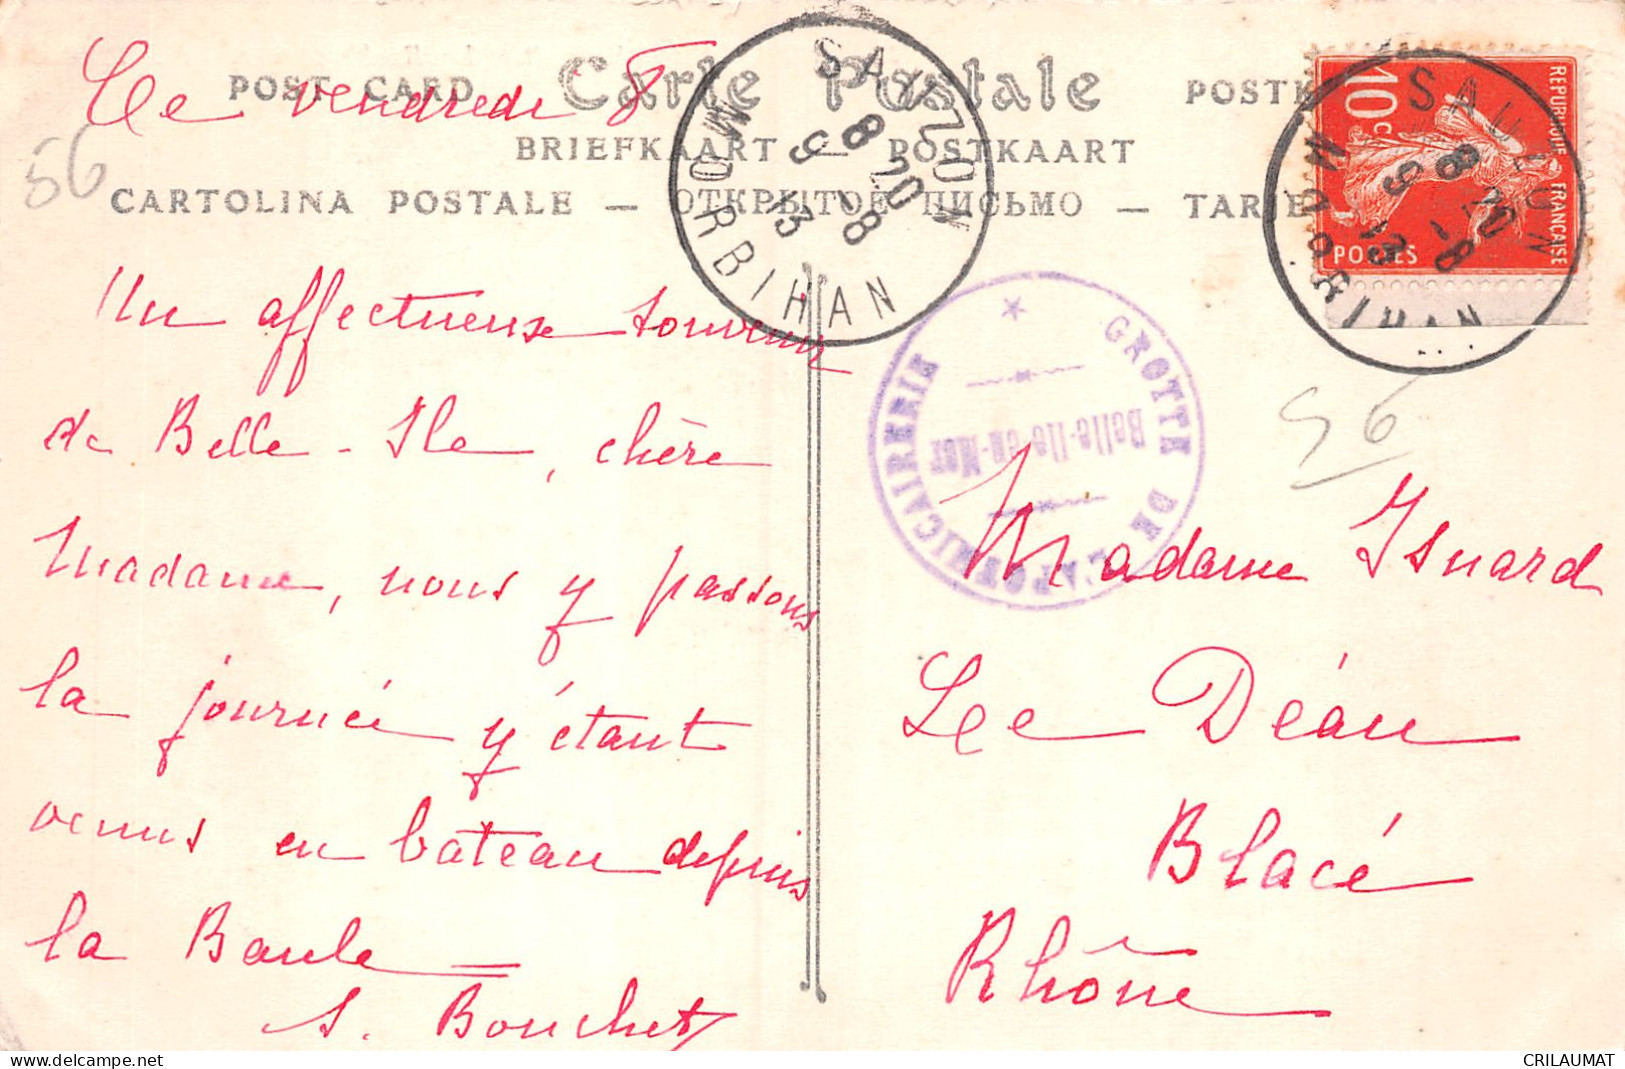 Ce vendredi 8
POST CARD Carte Postale POSTK
BRIEFKAART — POSTKAART
CARTOLINA POSTALE — ОТКРЫТОЕ ПИСЬМО — TARJE
56
SAUZON
8 20
9 -8
13
MORBIHAN
SAUZON
8 20
9 -8
13
MORBIHAN
REPUBLIQUE FRANÇAISE
10c
POSTES
GROTTE DE L'APOTHICAIRERIE
Belle-Ile-en-Mer
56
Un affectueux souvenir
de Belle-Ile, chère
Madame, nous y passons
la journée y étant
venus en bateau depuis
la Baule
S. Bouchet
Madame Isnard
Le Déau
Blacé
Rhône
CRILAUMAT